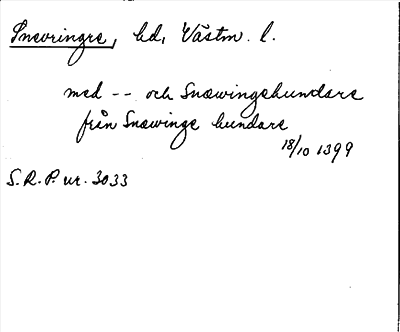 Snevringre, hd, Västm. l.
med -- och Snæwingehundare
från Snæwinge hundare
18/10 1399
S.R.P. nr. 3033